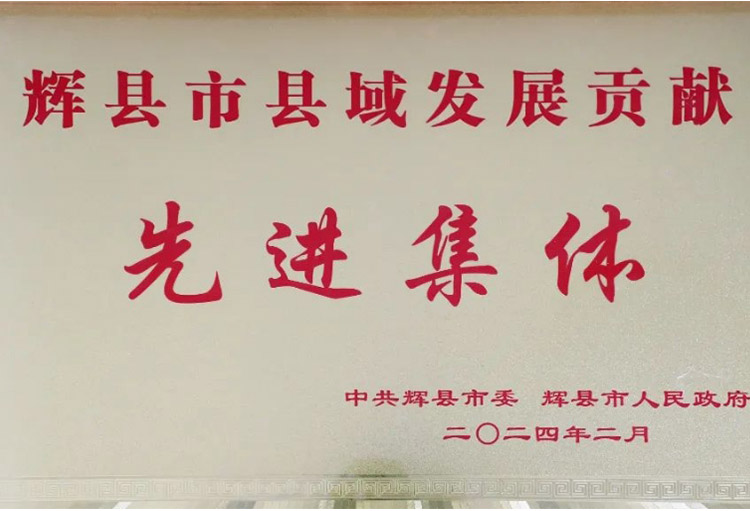 辉县市县域发展贡献
先进集体
中共辉县市委 辉县市人民政府
二〇二四年二月